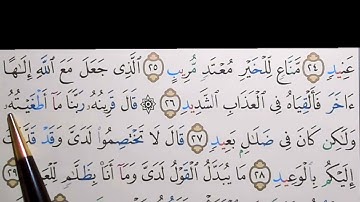 عَنِيدٍ ٢٤ مَّنَّاعٍ لِّلْخَيْرِ مُعْتَدٍ مُّرِيبٍ ٢٥ الَّذِى جَعَلَ مَعَ اللَّهِ إِلَٰهًا
ءَاخَرَ فَأَلْقِيَاهُ فِى الْعَذَابِ الشَّدِيدِ ٢٦ ۞ قَالَ قَرِينُهُۥ رَبَّنَا مَآ أَطْغَيْتُهُۥ
وَلَٰكِن كَانَ فِى ضَلَٰلٍۭ بَعِيدٍ ٢٧ قَالَ لَا تَخْتَصِمُوا۟ لَدَىَّ وَقَدْ قَدَّمْتُ
إِلَيْكُم بِالْوَعِيدِ ٢٨ مَا يُبَدَّلُ الْقَوْلُ لَدَىَّ وَمَآ أَنَا۠ بِظَلَّٰمٍ لِّلْعَبِيدِ ٢٩